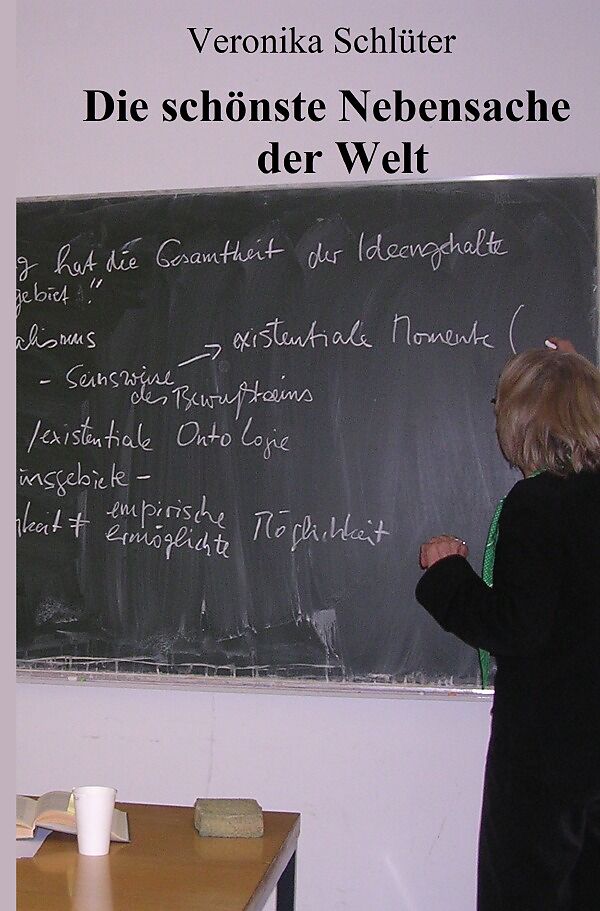 Veronika Schlüter
Die schönste Nebensache
der Welt
g hat die Gesamtheit der Ideengehalte
gebiet."
alismus
existentiale Momente (
- Seinsweise
des Bewußtseins
/existentiale Ontologie
insgebiete -
hkeit ≠ empirische Möglichkeit
ermöglichte